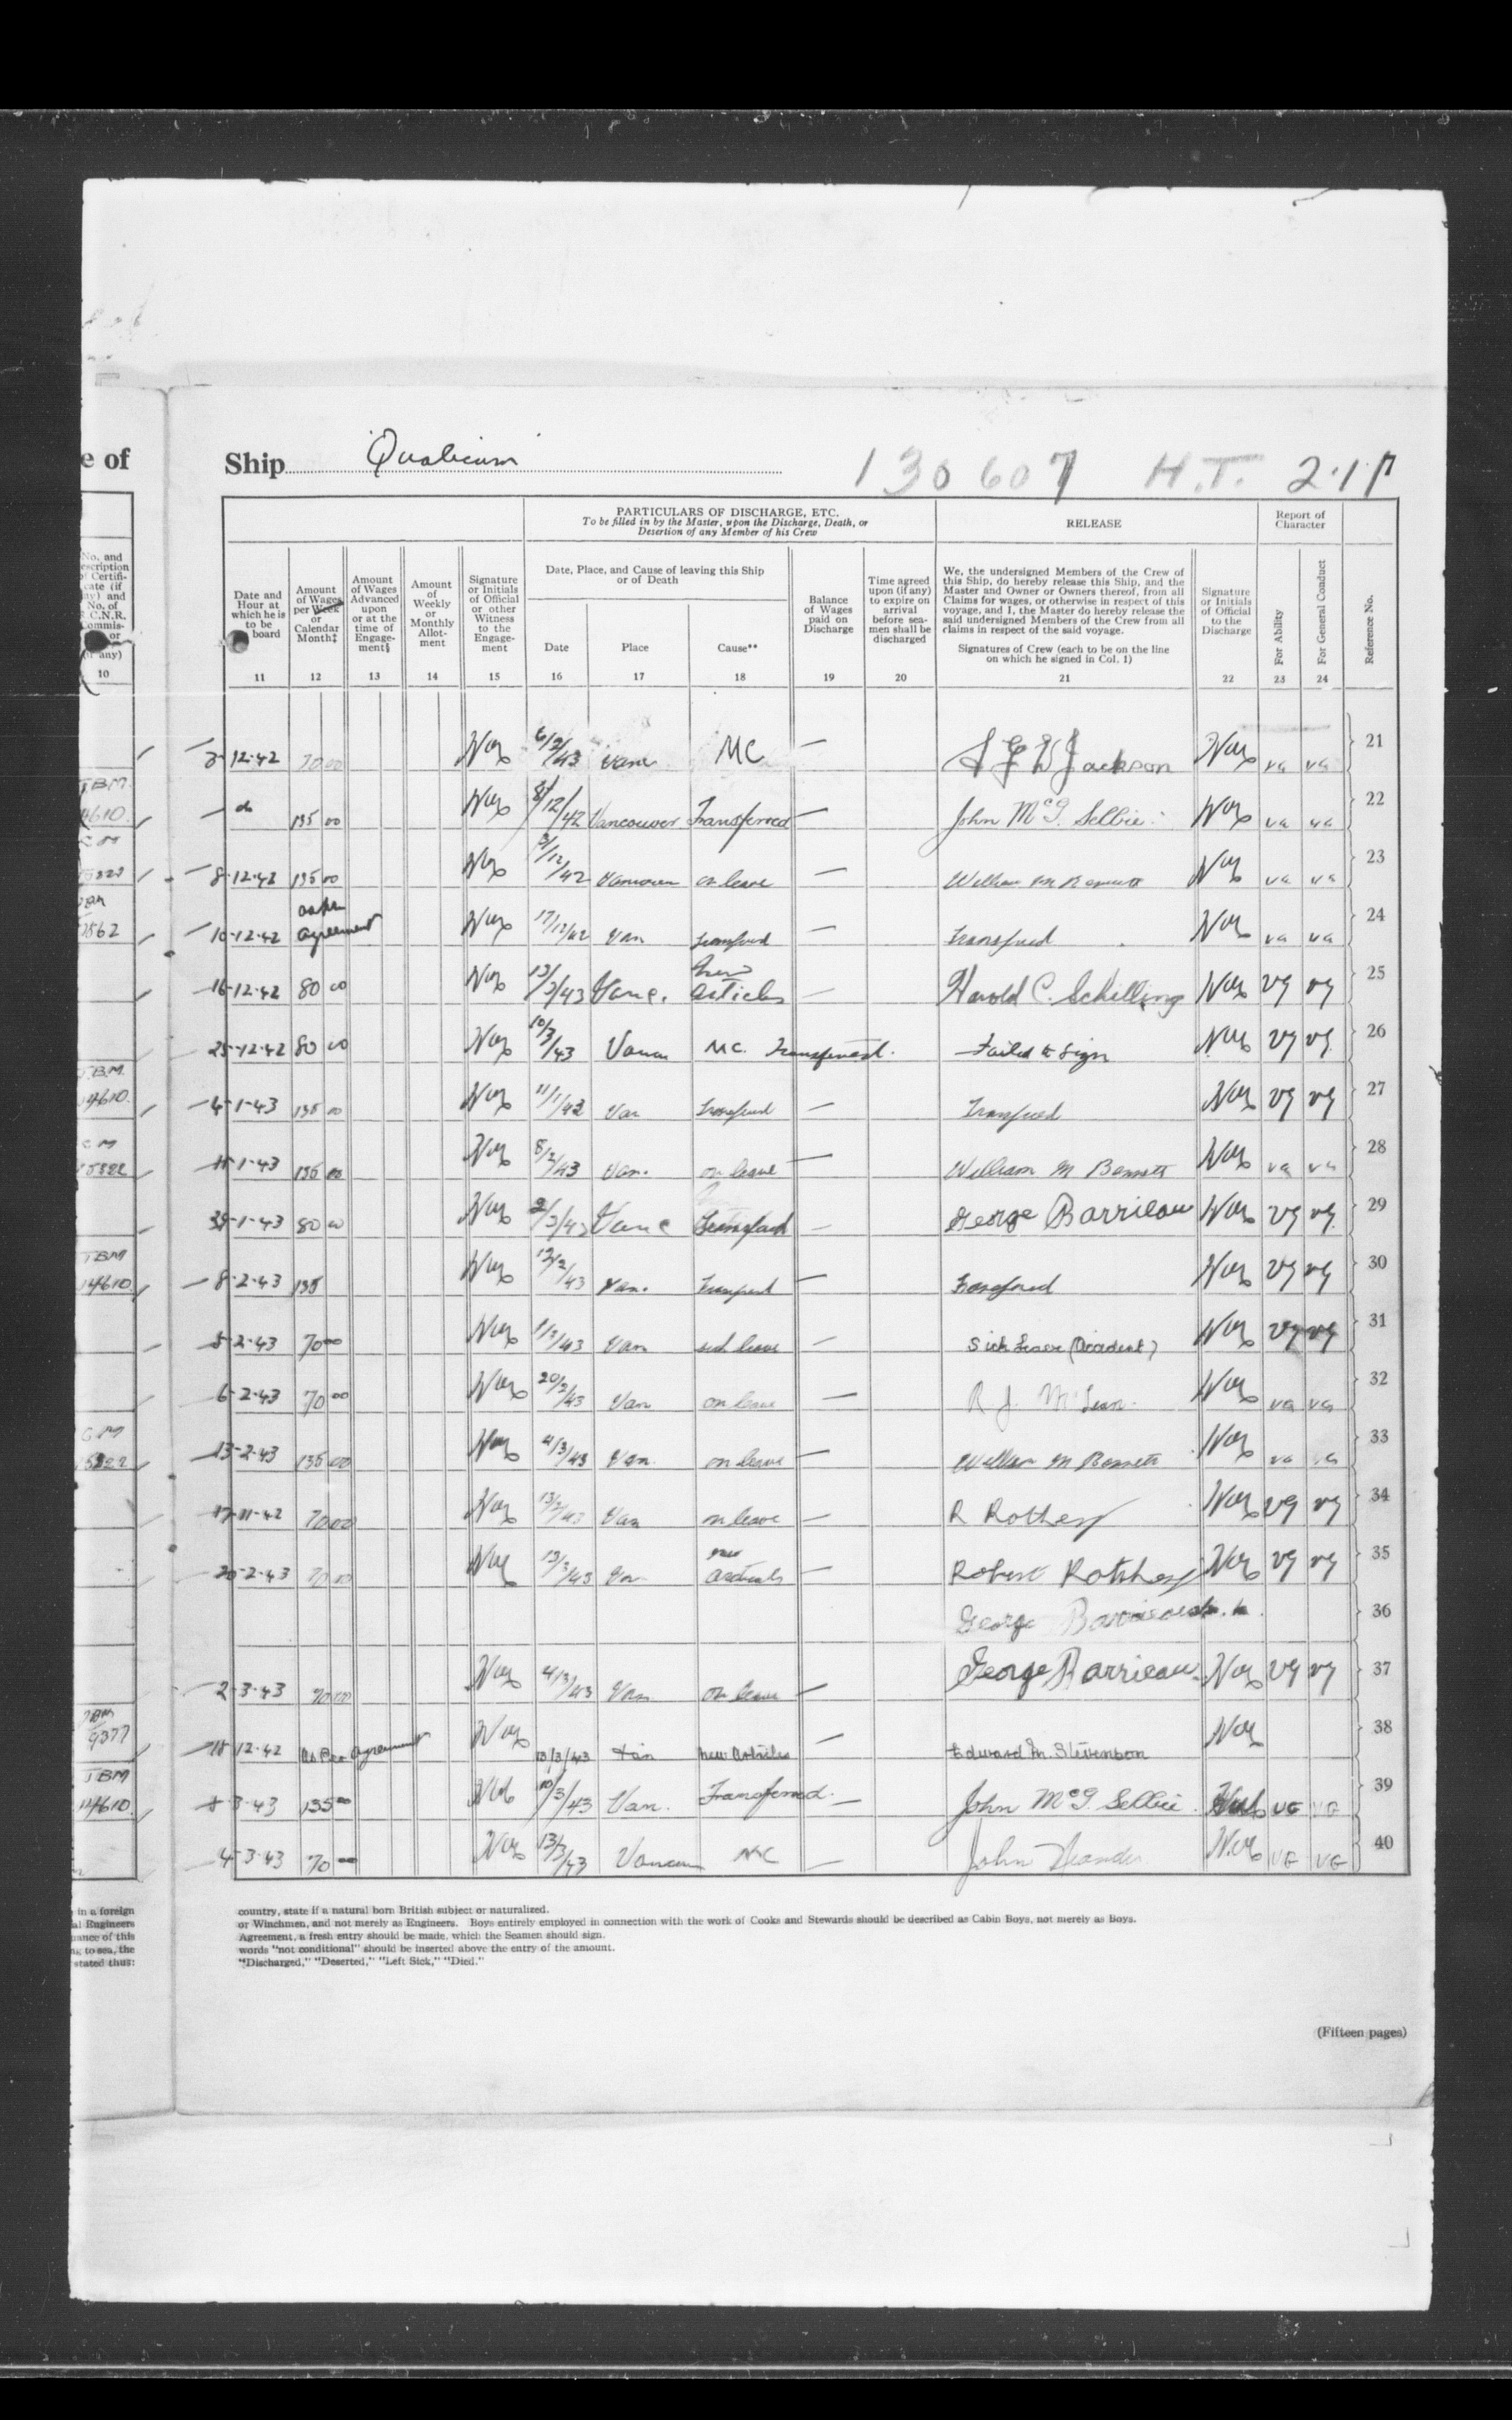 e of
Ship Qualicum 130607 H.T. 2.17
PARTICULARS OF DISCHARGE, ETC.
To be filled in by the Master, upon the Discharge, Death, or
Desertion of any Member of his Crew
RELEASE
Report of
Character
No. and
Certifi-
cate (if
any) and
No. of
R.C.N.R.
Commis-
or
(if any)
10
Date and
Hour at
which he is
to be
board
11
Amount
of Wages
per Week
or
Calendar
Month‡
12
Amount
of Wages
Advanced
upon
or at the
time of
Engage-
ment§
13
Amount
of
Weekly
or
Monthly
Allot-
ment
14
Signature
or Initials
of Official
or other
Witness
to the
Engage-
ment
15
Date, Place, and Cause of leaving this Ship
or of Death
Date
16
Place
17
Cause**
18
Balance
of Wages
paid on
Discharge
19
Time agreed
upon (if any)
to expire on
arrival
before sea-
men shall be
discharged
20
We, the undersigned Members of the Crew of
this Ship, do hereby release this Ship, and the
Master and Owner or Owners thereof, from all
Claims for wages, or otherwise in respect of this
voyage, and I, the Master do hereby release the
said undersigned Members of the Crew from all
claims in respect of the said voyage.
Signatures of Crew (each to be on the line
on which he signed in Col. 1)
21
Signature
or Initials
of Official
to the
Discharge
22
For Ability
23
For General Conduct
24
Reference No.
12.42 70 00 Vanc MC Jackson VG VG 21
J.B.M.
14610 do 135 00 8/12/42 Vancouver Transferred John McG. Sellie VG VG 22
8-12-42 135 00 on leave VG VG 23
7562 10-12-42 as per
agreement 17/12/42 Van Transferred Transferred VG VG 24
16-12-42 80 00 13/3/43 Vanc. New
Articles Harold C. Schilling VG VG 25
25-12-42 80 00 10/3/43 MC. Transferred. Failed to Sign VG VG 26
J.B.M.
14610. 4-1-43 135 00 Van Transferred Transferred VG VG 27
11-1-43 135 00 8/2/43 Van. on leave William M Bennett VG VG 28
-1-43 80 00 Vanc Transferred George Barrieau VG VG 29
JBM
14610 8-2-43 135 12/2/43 Van. Transferred Transferred VG VG 30
2-43 70 00 Van sick leave Sick Leave (Accident) VG VG 31
6-2-43 70 00 20/2/43 Van on leave R J. McLean VG VG 32
13-2-43 135 00 4/3/43 Van. on leave William M Bennett 33
17-11-42 70 00 Van on leave R Rothery VG VG 34
20-2-43 70 00 13/3/43 Van new
articles Robert Rothery VG VG 35
George 36
2-3-43 70 00 4/3/43 Van on leave George Barrieau VG VG 37
JBM
9377 12-42 as Per agreement 13/3/43 Van new Articles Edward M. Stevenson 38
JBM
14610. 3-43 135 00 10/3/43 Van. Transferred John McG. Sellie VG VG 39
4-3-43 70 00 13/3/43 MC John VG VG 40
in a foreign
al Engineers
nance of this
ng to sea, the
stated thus:
country, state if a natural born British subject or naturalized.
or Winchmen, and not merely as Engineers. Boys entirely employed in connection with the work of Cooks and Stewards should be described as Cabin Boys, not merely as Boys.
Agreement, a fresh entry should be made, which the Seamen should sign.
words "not conditional" should be inserted above the entry of the amount.
"Discharged," "Deserted," "Left Sick," "Died."
(Fifteen pages)